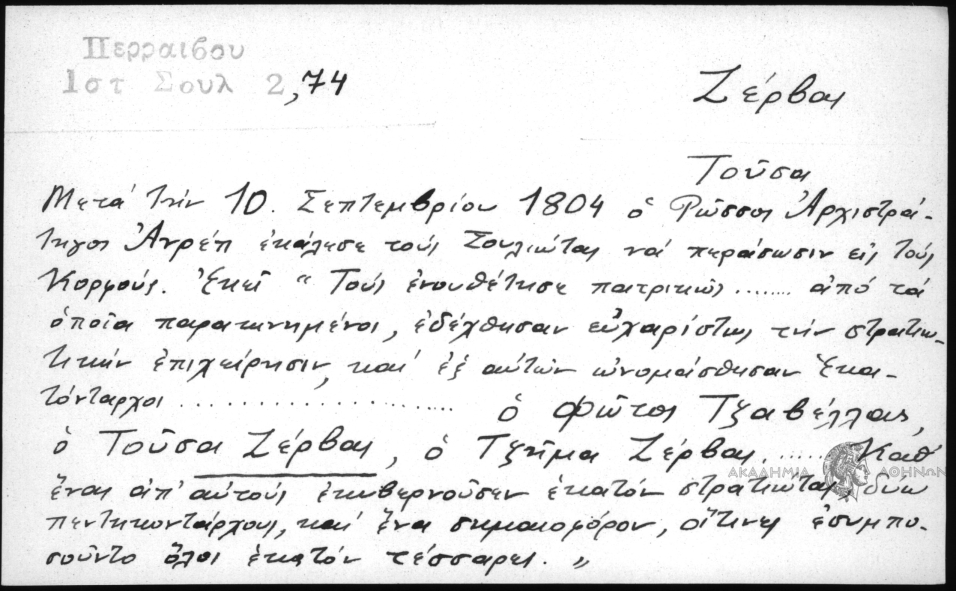 Περραιβου
Ιστ Σουλ 2,74
Ζέρβας
Τοῦσα
Μετά τήν 10. Σεπτεμβρίου 1804 ὁ Ρῶσσος Ἀρχιστρά-
τηγος Ἀνρέπ ἐκάλεσε τούς Σουλιώτας νά περάσωσιν εἰς τούς
Κορφούς. Ἐκεῖ " Τούς ἐνουθέτησε πατρικῶς ........ ἀπό τά
ὁποῖα παρακινημένοι, ἐδέχθησαν εὐχαρίστως τήν στρατιω-
τικήν ἐπιχείρησιν, καί ἐξ αὐτῶν ὠνομάσθησαν Ἑκα-
τόνταρχοι ........................ ὁ Φῶτος Τζαβέλλας,
ὁ Τοῦσα Ζέρβας, ὁ Τζῆμα Ζέρβας ...... Καθ
ἕνας ἀπ' αὐτούς ἐκυβερνοῦσεν ἑκατόν στρατιώτας δύω
πεντηκοντάρχους, καί ἕνα σημαιοφόρον, οἵτινες ἐσυμπο-
σοῦντο ὅλοι ἑκατόν τέσσαρες. "
ΑΚΑΔΗΜΙΑ ΑΘΗΝΩΝ